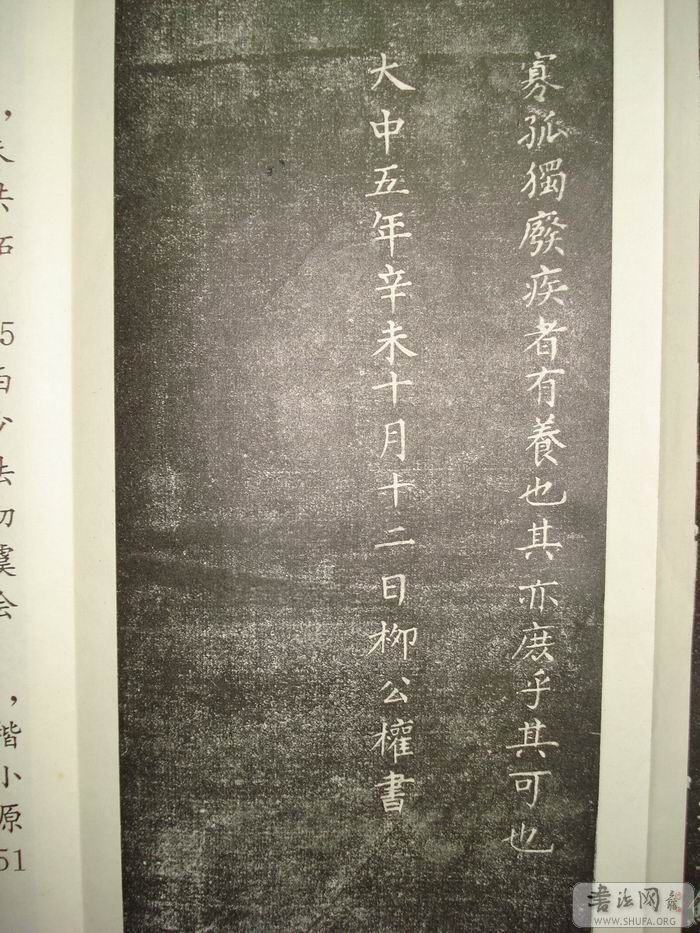 寡孤獨廢疾者有養也其亦庶乎其可也
大中五年辛未十月十二日柳公權書
，
共
5
百
少
法
切
虞
会
，
楷
小
原
51
书法网
WWW.SHUFA.ORG